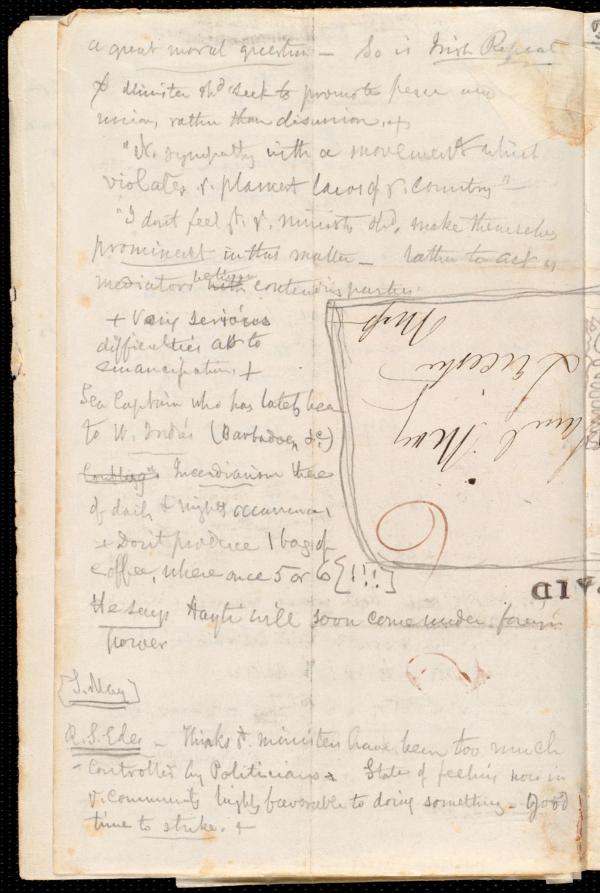 a great moral question — So is Irish Repeal
& Minister shd seek to promote peace and
union, rather than disunion, +
"No sympathy with a movement which
violates ye. plainest laws of ye. country" —
"I don't feel yt. ye. ministers shd. make themselves
prominent in this matter — rather to act as
mediators between with contending parties
+ Very serious
difficulties as to
emancipation +
Sea Captain who has lately been
to W. Indies (Barbadoes, &c.)
Incendiarism there
of daily & nightly occurrence,
+ Dont produce 1 bag of
coffee, where once 5 or 6 [!!!]
He says Hayti will soon come under foreign
power
[S. May]
R. S. Edes — Thinks ye. ministers have been too much
controlled by Politicians + State of feeling now in
ye. community highly favorable to doing something — Good
time to strike. +
Samuel May
Leicester
Mass
6
PAID